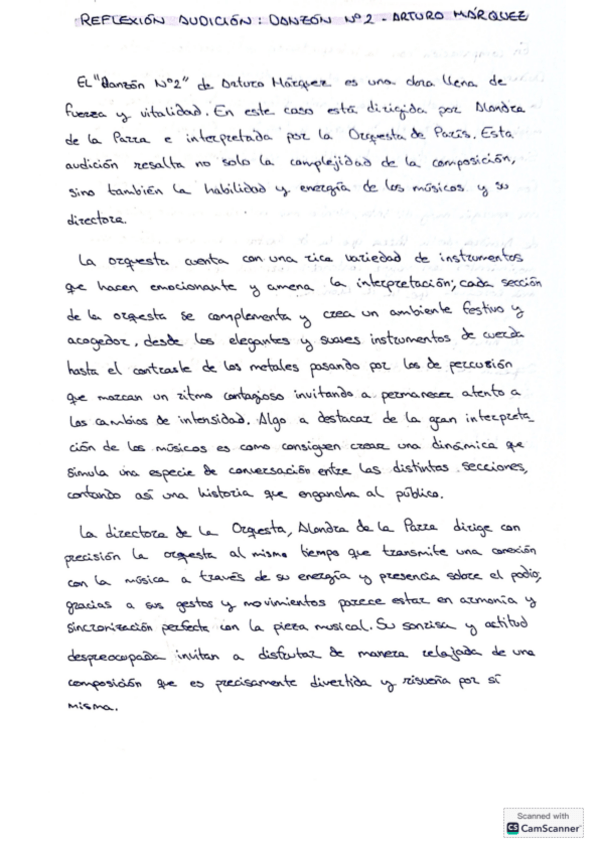 REFLEXIÓN AUDICIÓN: DANZÓN Nº2 - ARTURO MÁRQUEZ
EL "Danzón Nº2" de Arturo Márquez es una obra llena de
fuerza y vitalidad. En este caso está dirigida por Alondra
de la Parra e interpretada por la Orquesta de París. Esta
audición resalta no solo la complejidad de la composición,
sino también la habilidad y energía de los músicos y su
directora.
La orquesta cuenta con una rica variedad de instrumentos
que hacen emocionante y amena la interpretación; cada sección
de la orquesta se complementa y crea un ambiente festivo y
acogedor, desde los elegantes y suaves instrumentos de cuerda
hasta el contraste de los metales pasando por los de percusión
que marcan un ritmo contagioso invitando a permanecer atento a
los cambios de intensidad. Algo a destacar de la gran interpreta
ción de los músicos es como consiguen crear una dinámica que
simula una especie de conversación entre las distintas secciones,
contando así una historia que engancha al público.
La directora de la Orquesta, Alondra de la Parra dirige con
precisión la orquesta al mismo tiempo que transmite una conexión
con la música a través de su energía y presencia sobre el podio;
gracias a sus gestos y movimientos parece estar en armonía y
sincronización perfecta con la pieza musical. Su sonrisa y actitud
despreocupada invitan a disfrutar de manera relajada de una
composición que es precisamente divertida y risueña por sí
misma.
Scanned with
CS CamScanner